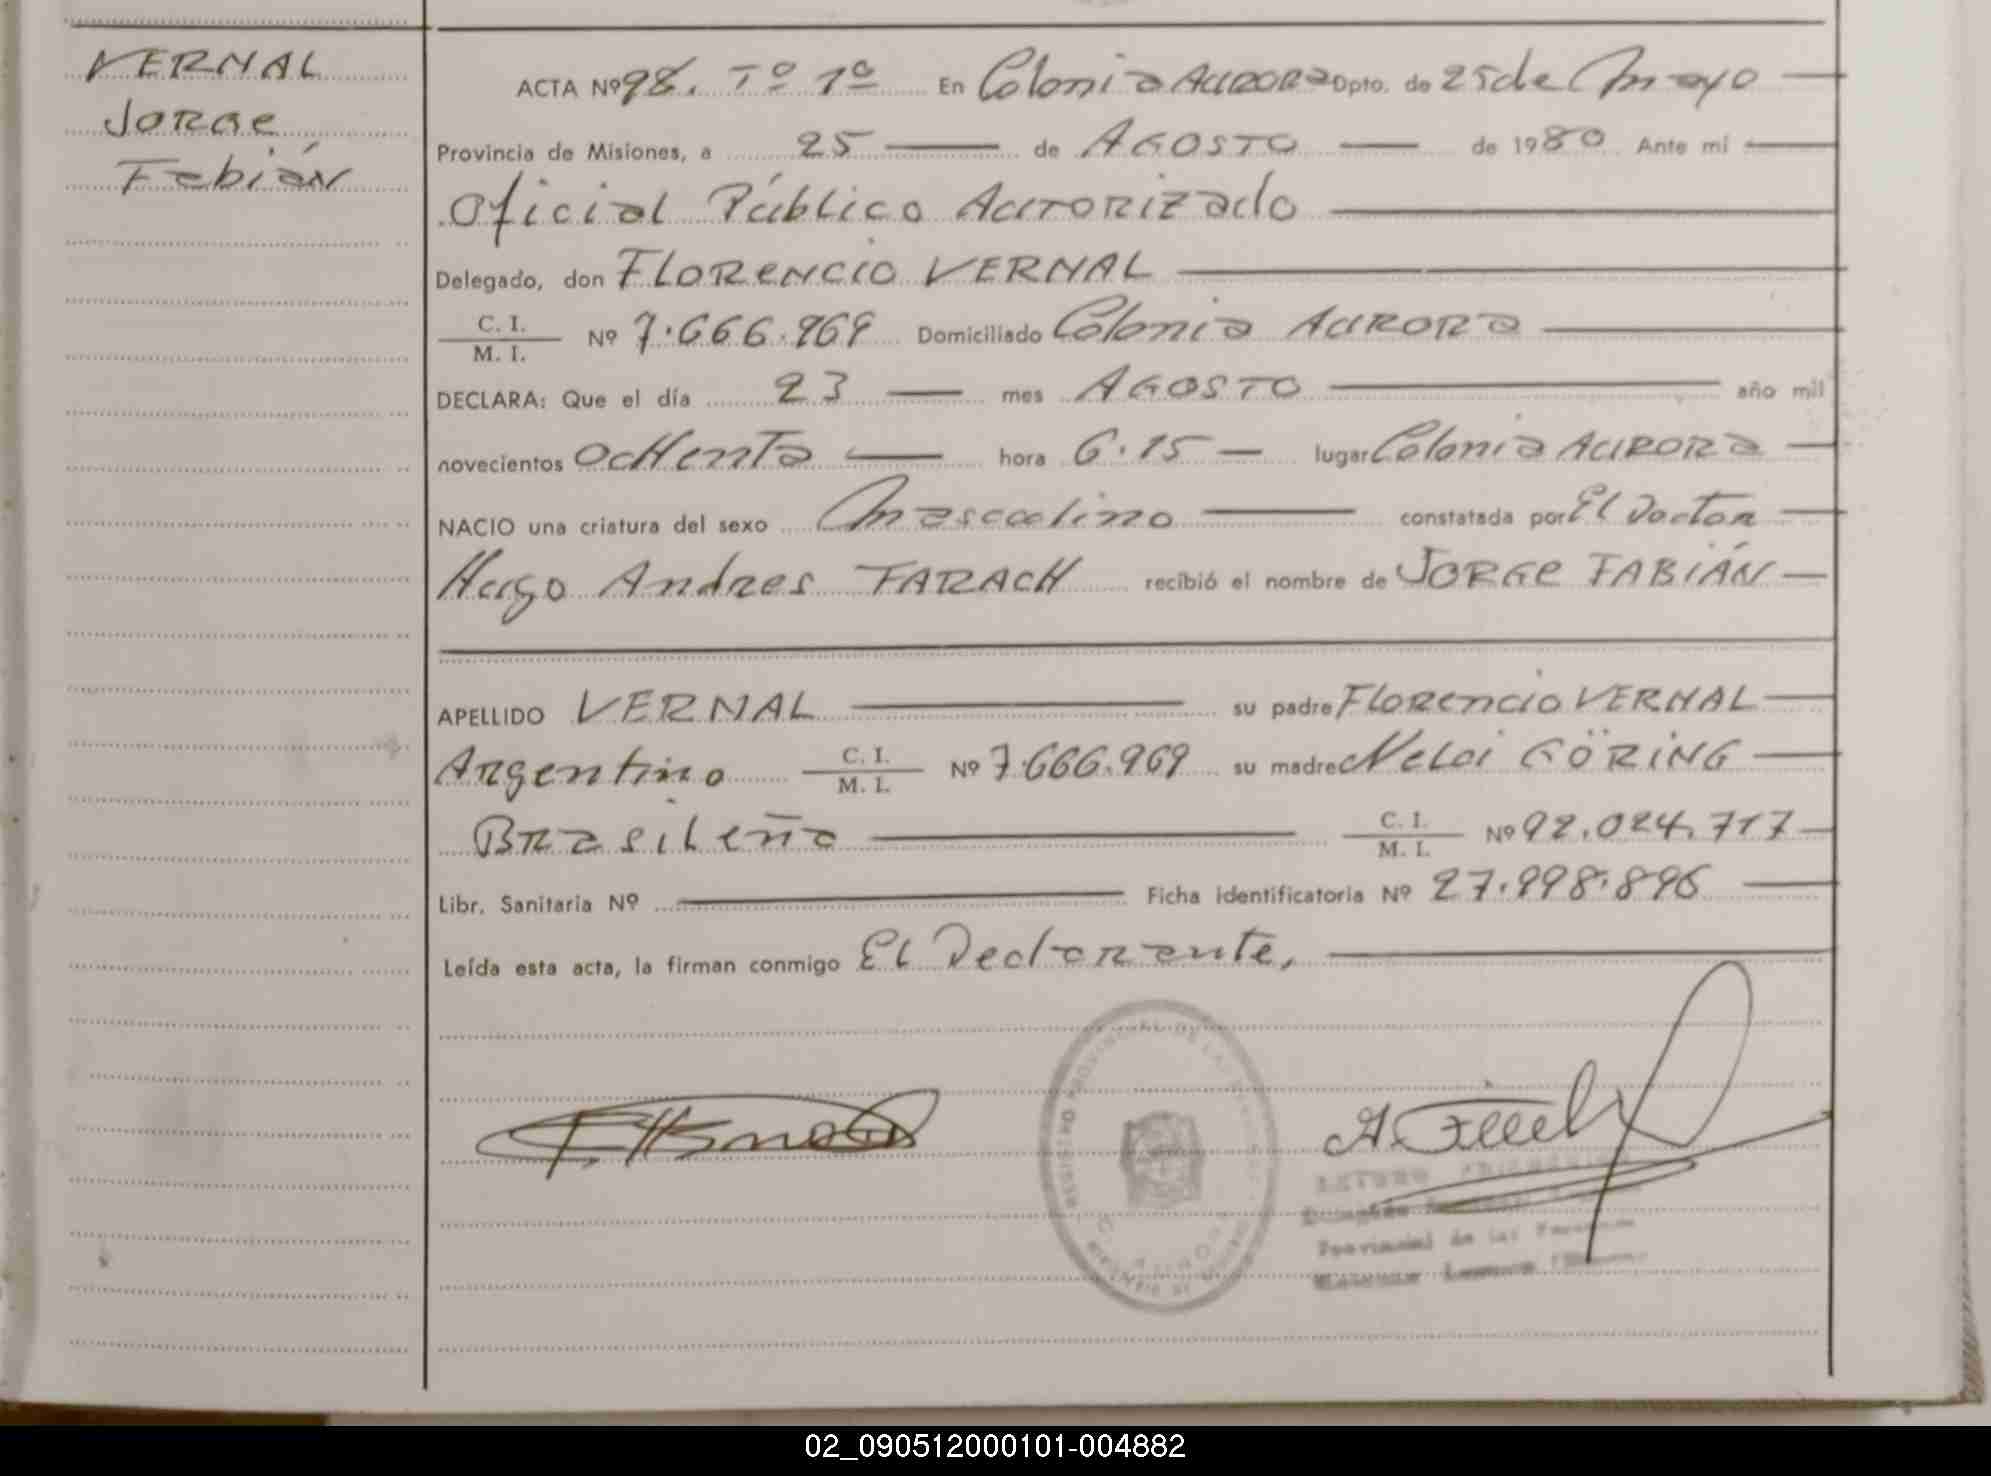 VERNAL
Jorge
Fabián
ACTA Nº 98. Tº 1º En Colonia Aurora Dpto. de 25 de Mayo
Provincia de Misiones, a 25 de Agosto de 1980 Ante mí
Oficial Público Autorizado
Delegado, don FLORENCIO VERNAL
C. I.
M. I. Nº 7.666.969 Domiciliado Colonia Aurora
DECLARA: Que el día 23 mes AGOSTO año mil
novecientos ocHenta hora 6.15 lugar Colonia Aurora
NACIO una criatura del sexo Masculino constatada por El Doctor
Hugo Andres FARACH recibió el nombre de JORGE FABIÁN
APELLIDO VERNAL su padre Florencio VERNAL
Argentino C. I. M. I. Nº 7.666.969 su madre Neloi GÖRING
Brasileña C. I. M. I. Nº 92.024.717
Libr. Sanitaria Nº Ficha identificatoria Nº 27.998.896
Leída esta acta, la firman conmigo El Declarante,
REGISTRO PROVINCIAL DE LAS
Provincial de las Personas
02_090512000101-004882